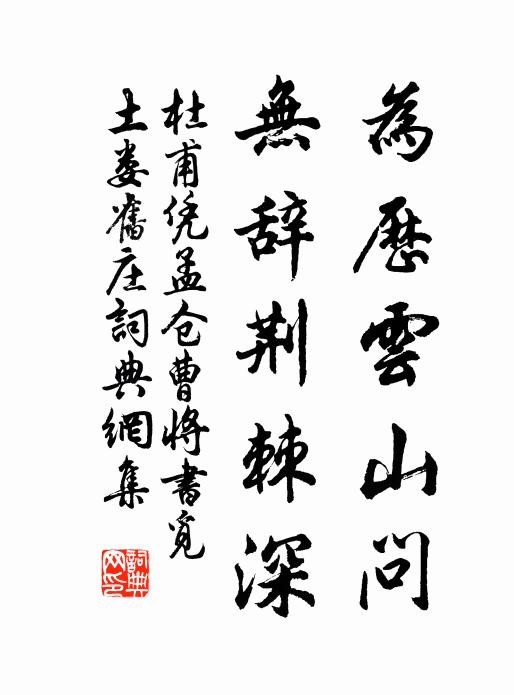 為歷雲山問
無辞荆棘深
杜甫凭孟仓曹將書覓
土娄舊庄詞典網集
詞典网印